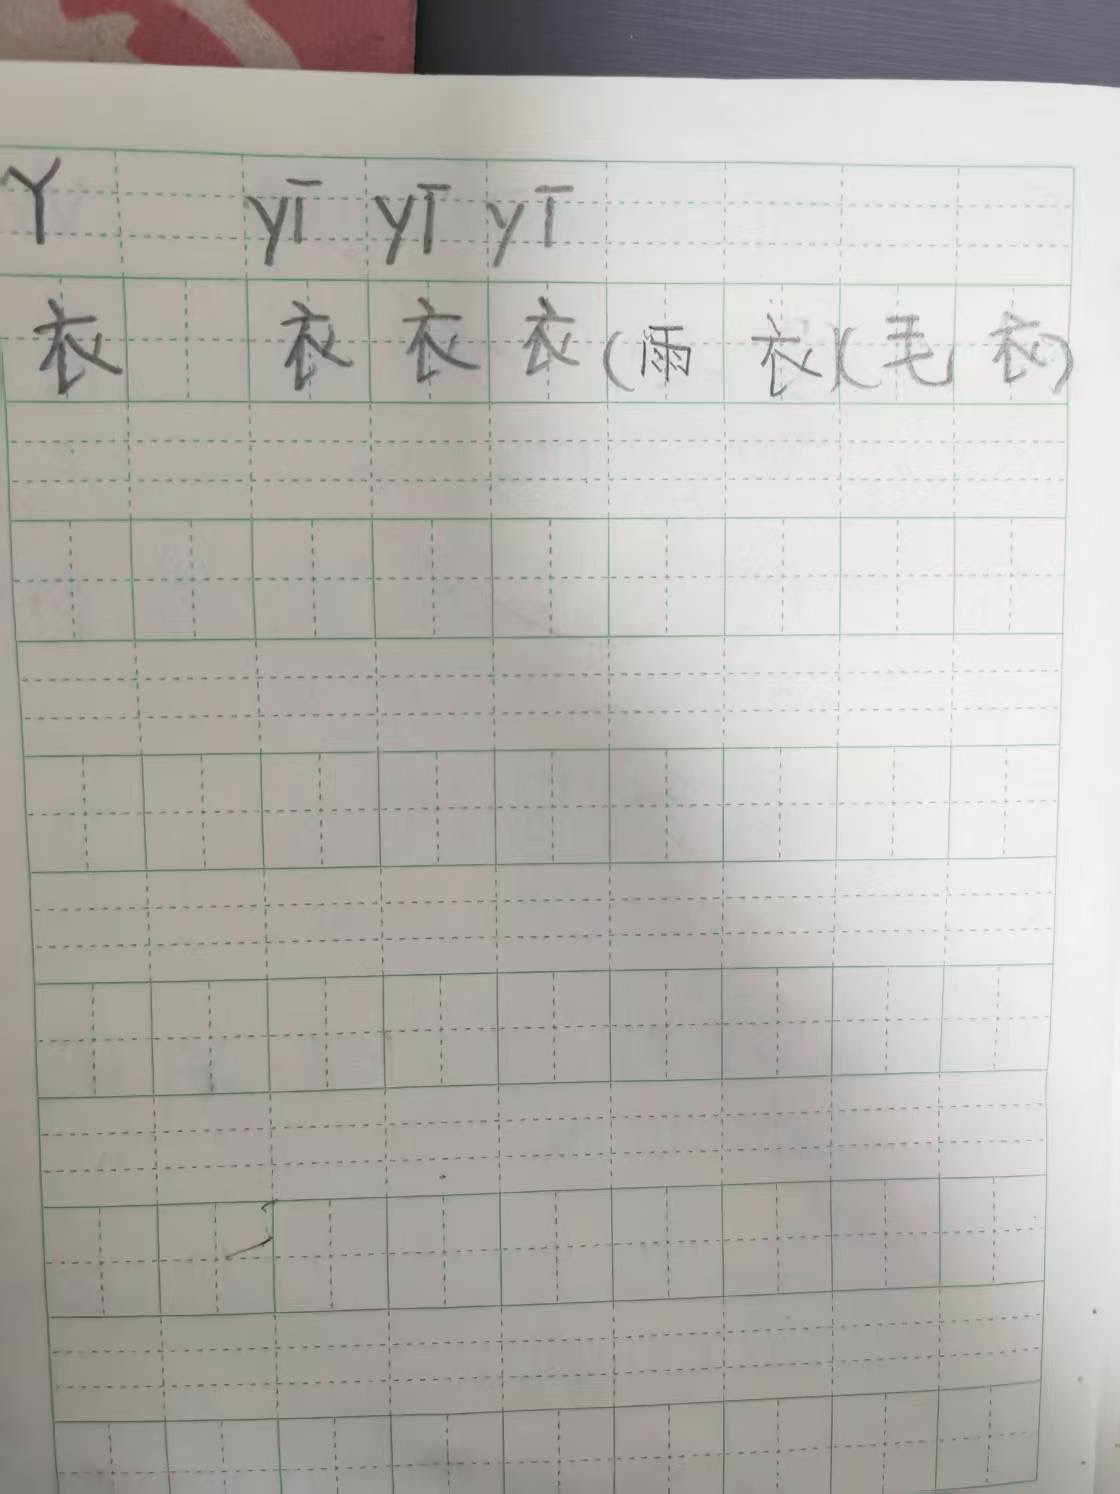 Y yī yī yī
衣 衣 衣 衣 (雨 衣)(毛 衣)